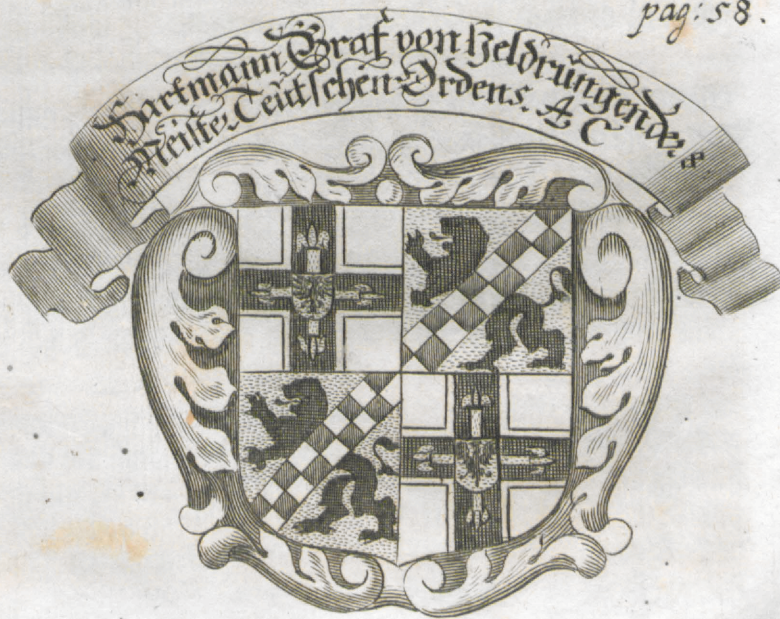 pag: 58.
Hartmann Graf von Heldrungen der 8
Meister Teutschen Ordens. A C